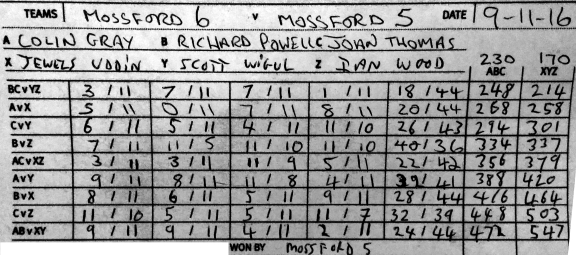 TEAMS MOSSFORD 6 V MOSSFORD 5 DATE 9-11-16
A COLIN GRAY B RICHARD POWELL C JOHN THOMAS
X JEWELS UDDIN Y SCOTT Z IAN WOOD 230 170
ABC XYZ
BCvYZ 3 / 11 7 / 11 7 / 11 1 / 11 18 / 44 248 214
AvX 5 / 11 0 / 11 7 / 11 8 / 11 20 / 44 268 258
CvY 6 / 11 5 / 11 4 / 11 11 / 10 26 / 43 294 301
BvZ 7 / 11 11 / 5 11 / 10 11 / 10 40 / 36 334 337
ACvXZ 3 / 11 3 / 11 11 / 9 5 / 11 22 / 42 356 379
AvY 9 / 11 8 / 11 11 / 8 4 / 11 32 / 41 388 420
BvX 8 / 11 6 / 11 5 / 11 9 / 11 28 / 44 416 464
CvZ 11 / 10 5 / 11 5 / 11 11 / 7 32 / 39 448 503
ABvXY 9 / 11 9 / 11 4 / 11 2 / 11 24 / 44 472 547
WON BY MOSSFORD 5